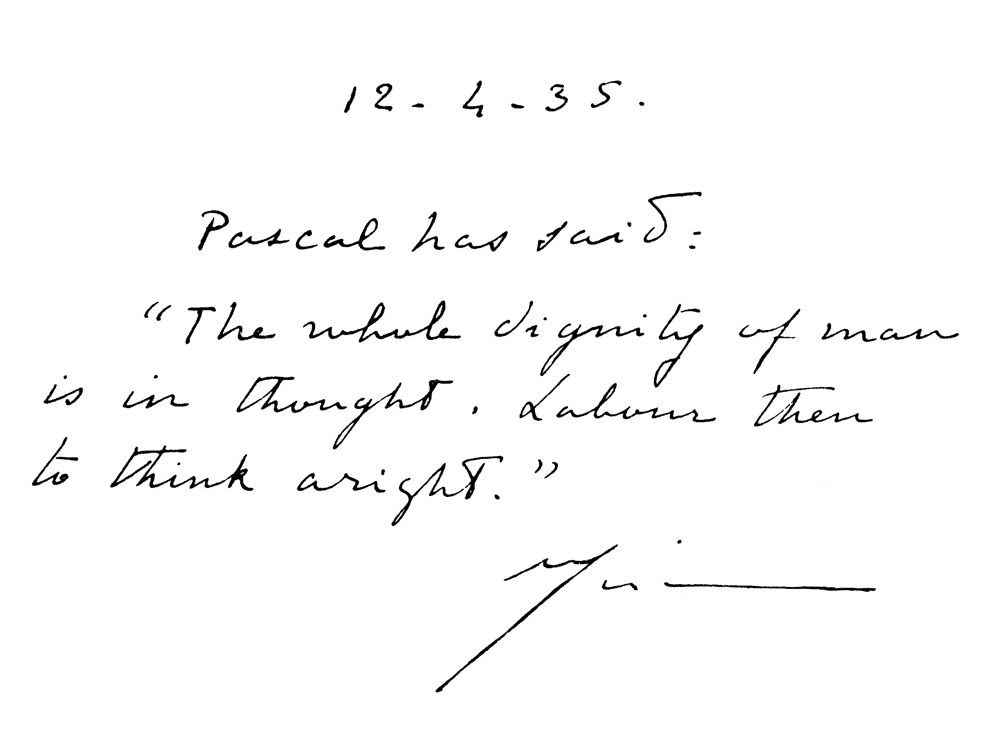 12-4-35.
Pascal has said:
“The whole dignity of man
is in thought. Labour then
to think aright.”